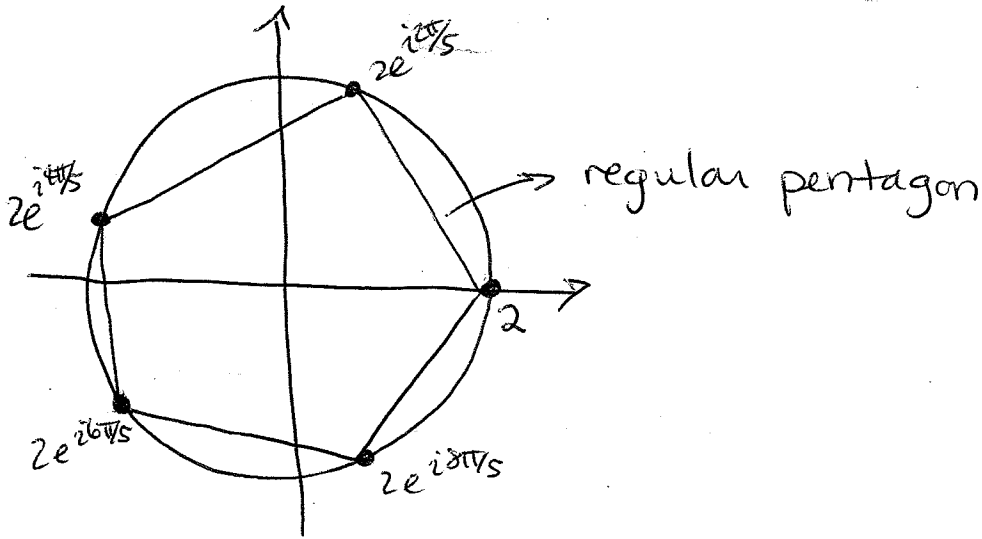 2e^{i2π/5}
2e^{i4π/5}
regular pentagon
2
2e^{i6π/5}
2e^{i8π/5}